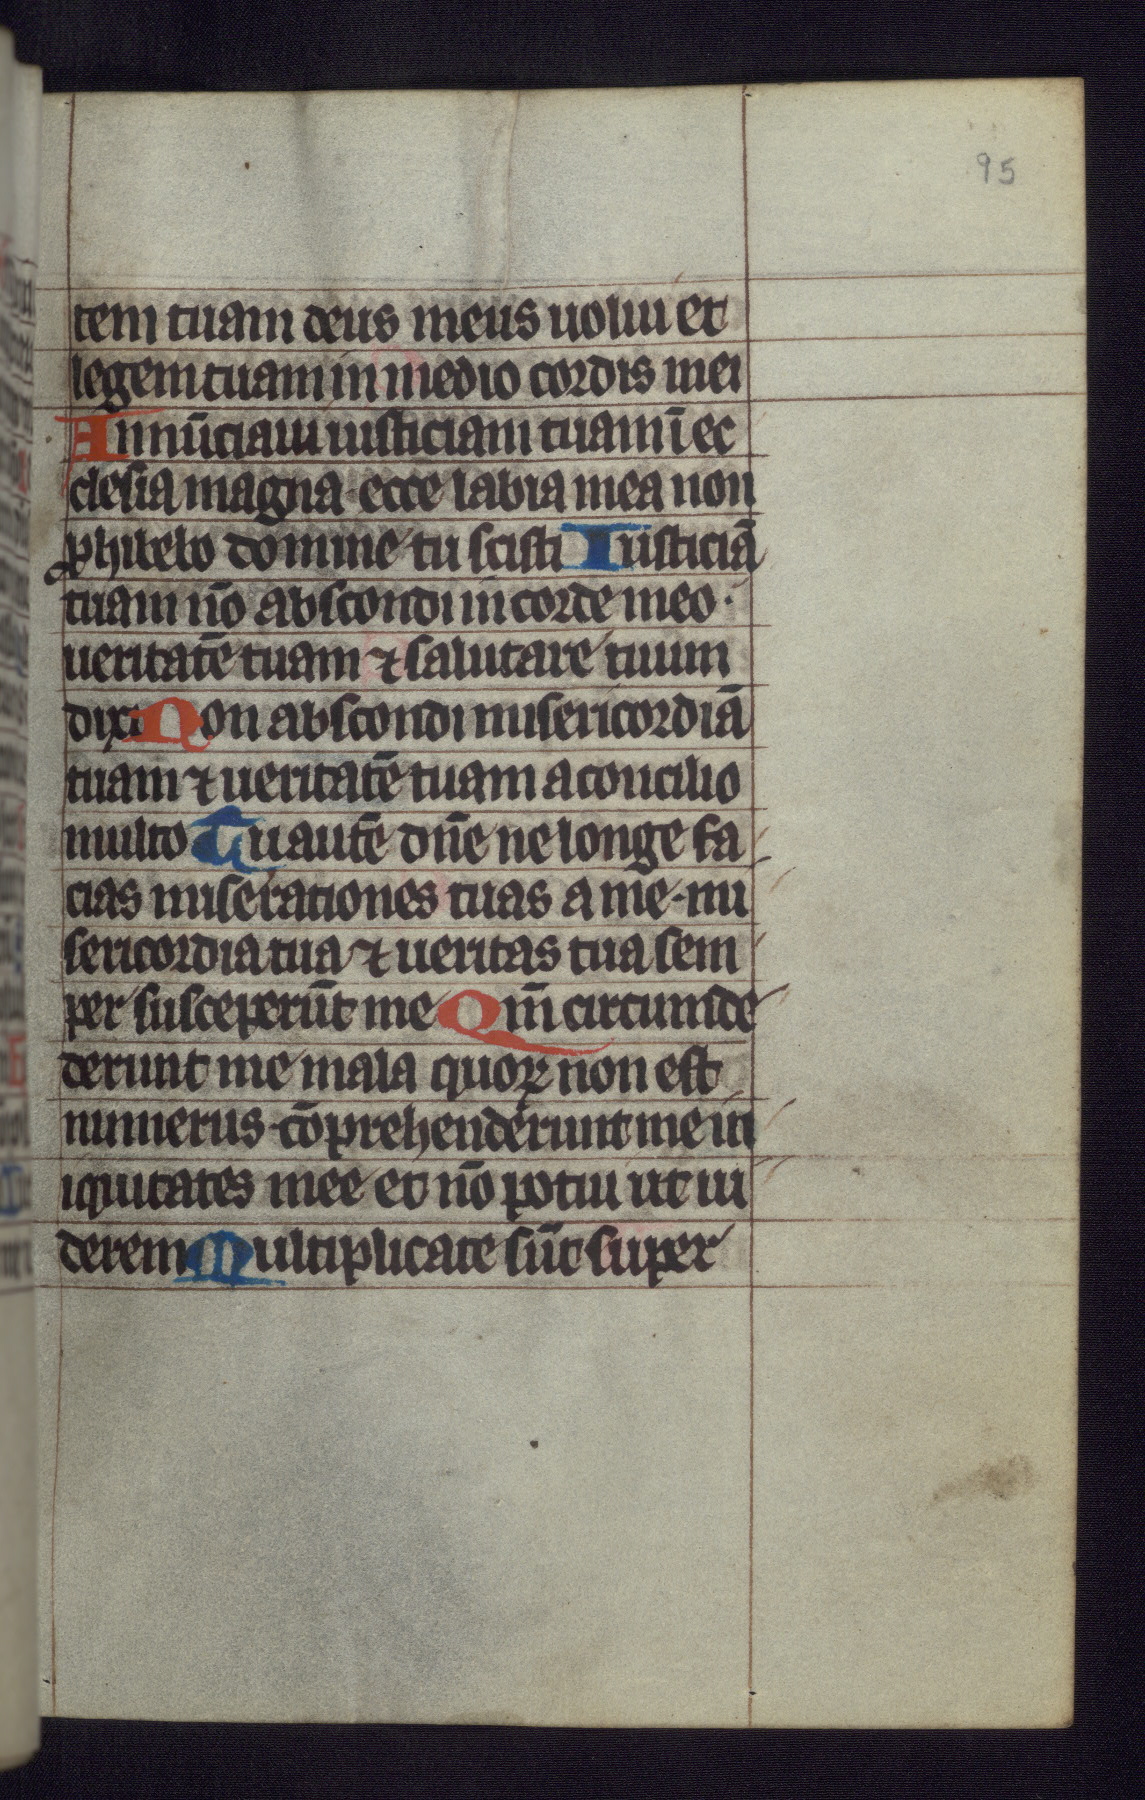 95
tem tuam deus meus uolui et
legem tuam in medio cordis mei
Annūciaui iusticiam tuam ī ec
clesia magna · ecce labia mea non
ꝓhibebo domine tu scisti Iusticiā
tuam nō abscondi in corde meo ·
ueritatē tuam ⁊ salutare tuum
dixi Non abscondi misericordiā
tuam ⁊ ueritatē tuam a concilio
multo Tu autē dn̄e ne longe fa
cias miserationes tuas a me · mi
sericordia tua ⁊ ueritas tua sem
per susceperūt me Qm̄ circumde
derunt me mala quoꝝ non est
numerus · cōprehenderunt me in
iquitates mee et nō potui ut ui
derem Multiplicate sūt super